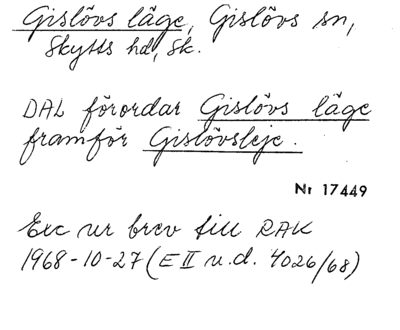 Gislövs läge, Gislövs sn,
Skytts hd, Sk.
DAL förordar Gislövs läge
framför Gislövsleje.
Nr 17449
Exc ur brev till RAK
1968-10-27 (E II u.d. 4026/68)